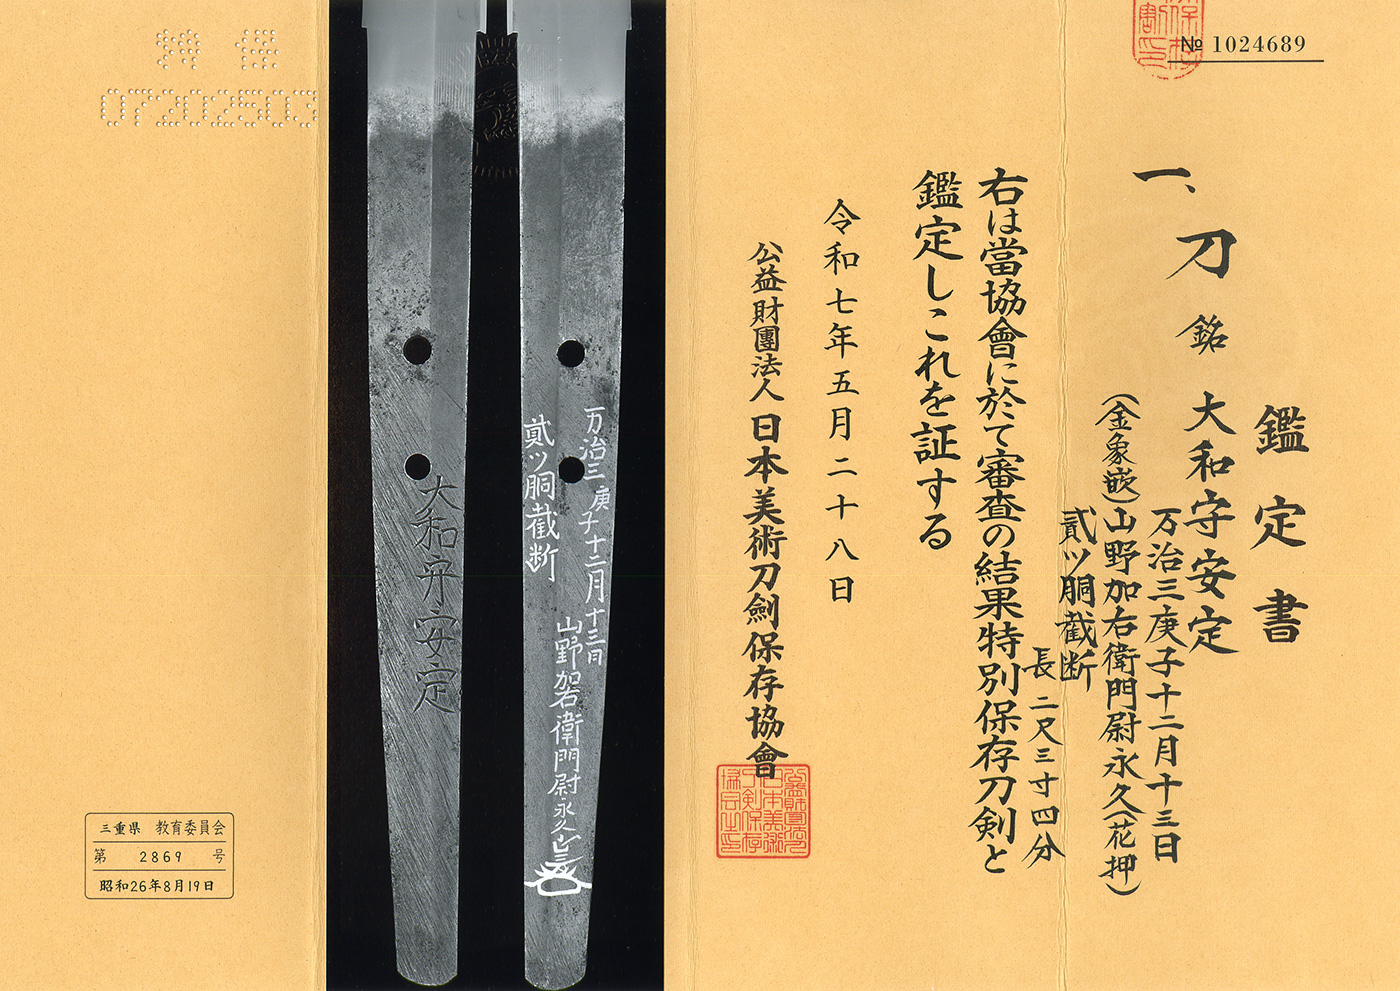 № 1024689
鑑定書
一、刀 銘 大和守安定
万治三庚子十二月十三日
(金象嵌)山野加右衛門尉永久(花押)
貳ツ胴截断
長 二尺三寸四分
右は當協會に於て審査の結果特別保存刀剣と
鑑定しこれを証する
令和七年五月二十八日
公益財團法人 日本美術刀劍保存協會
万治三庚子十二月十三日
山野加右衛門尉永久
貳ツ胴截断
大和守安定
07202503
三重県 教育委員会
第 2869 号
昭和26年8月19日